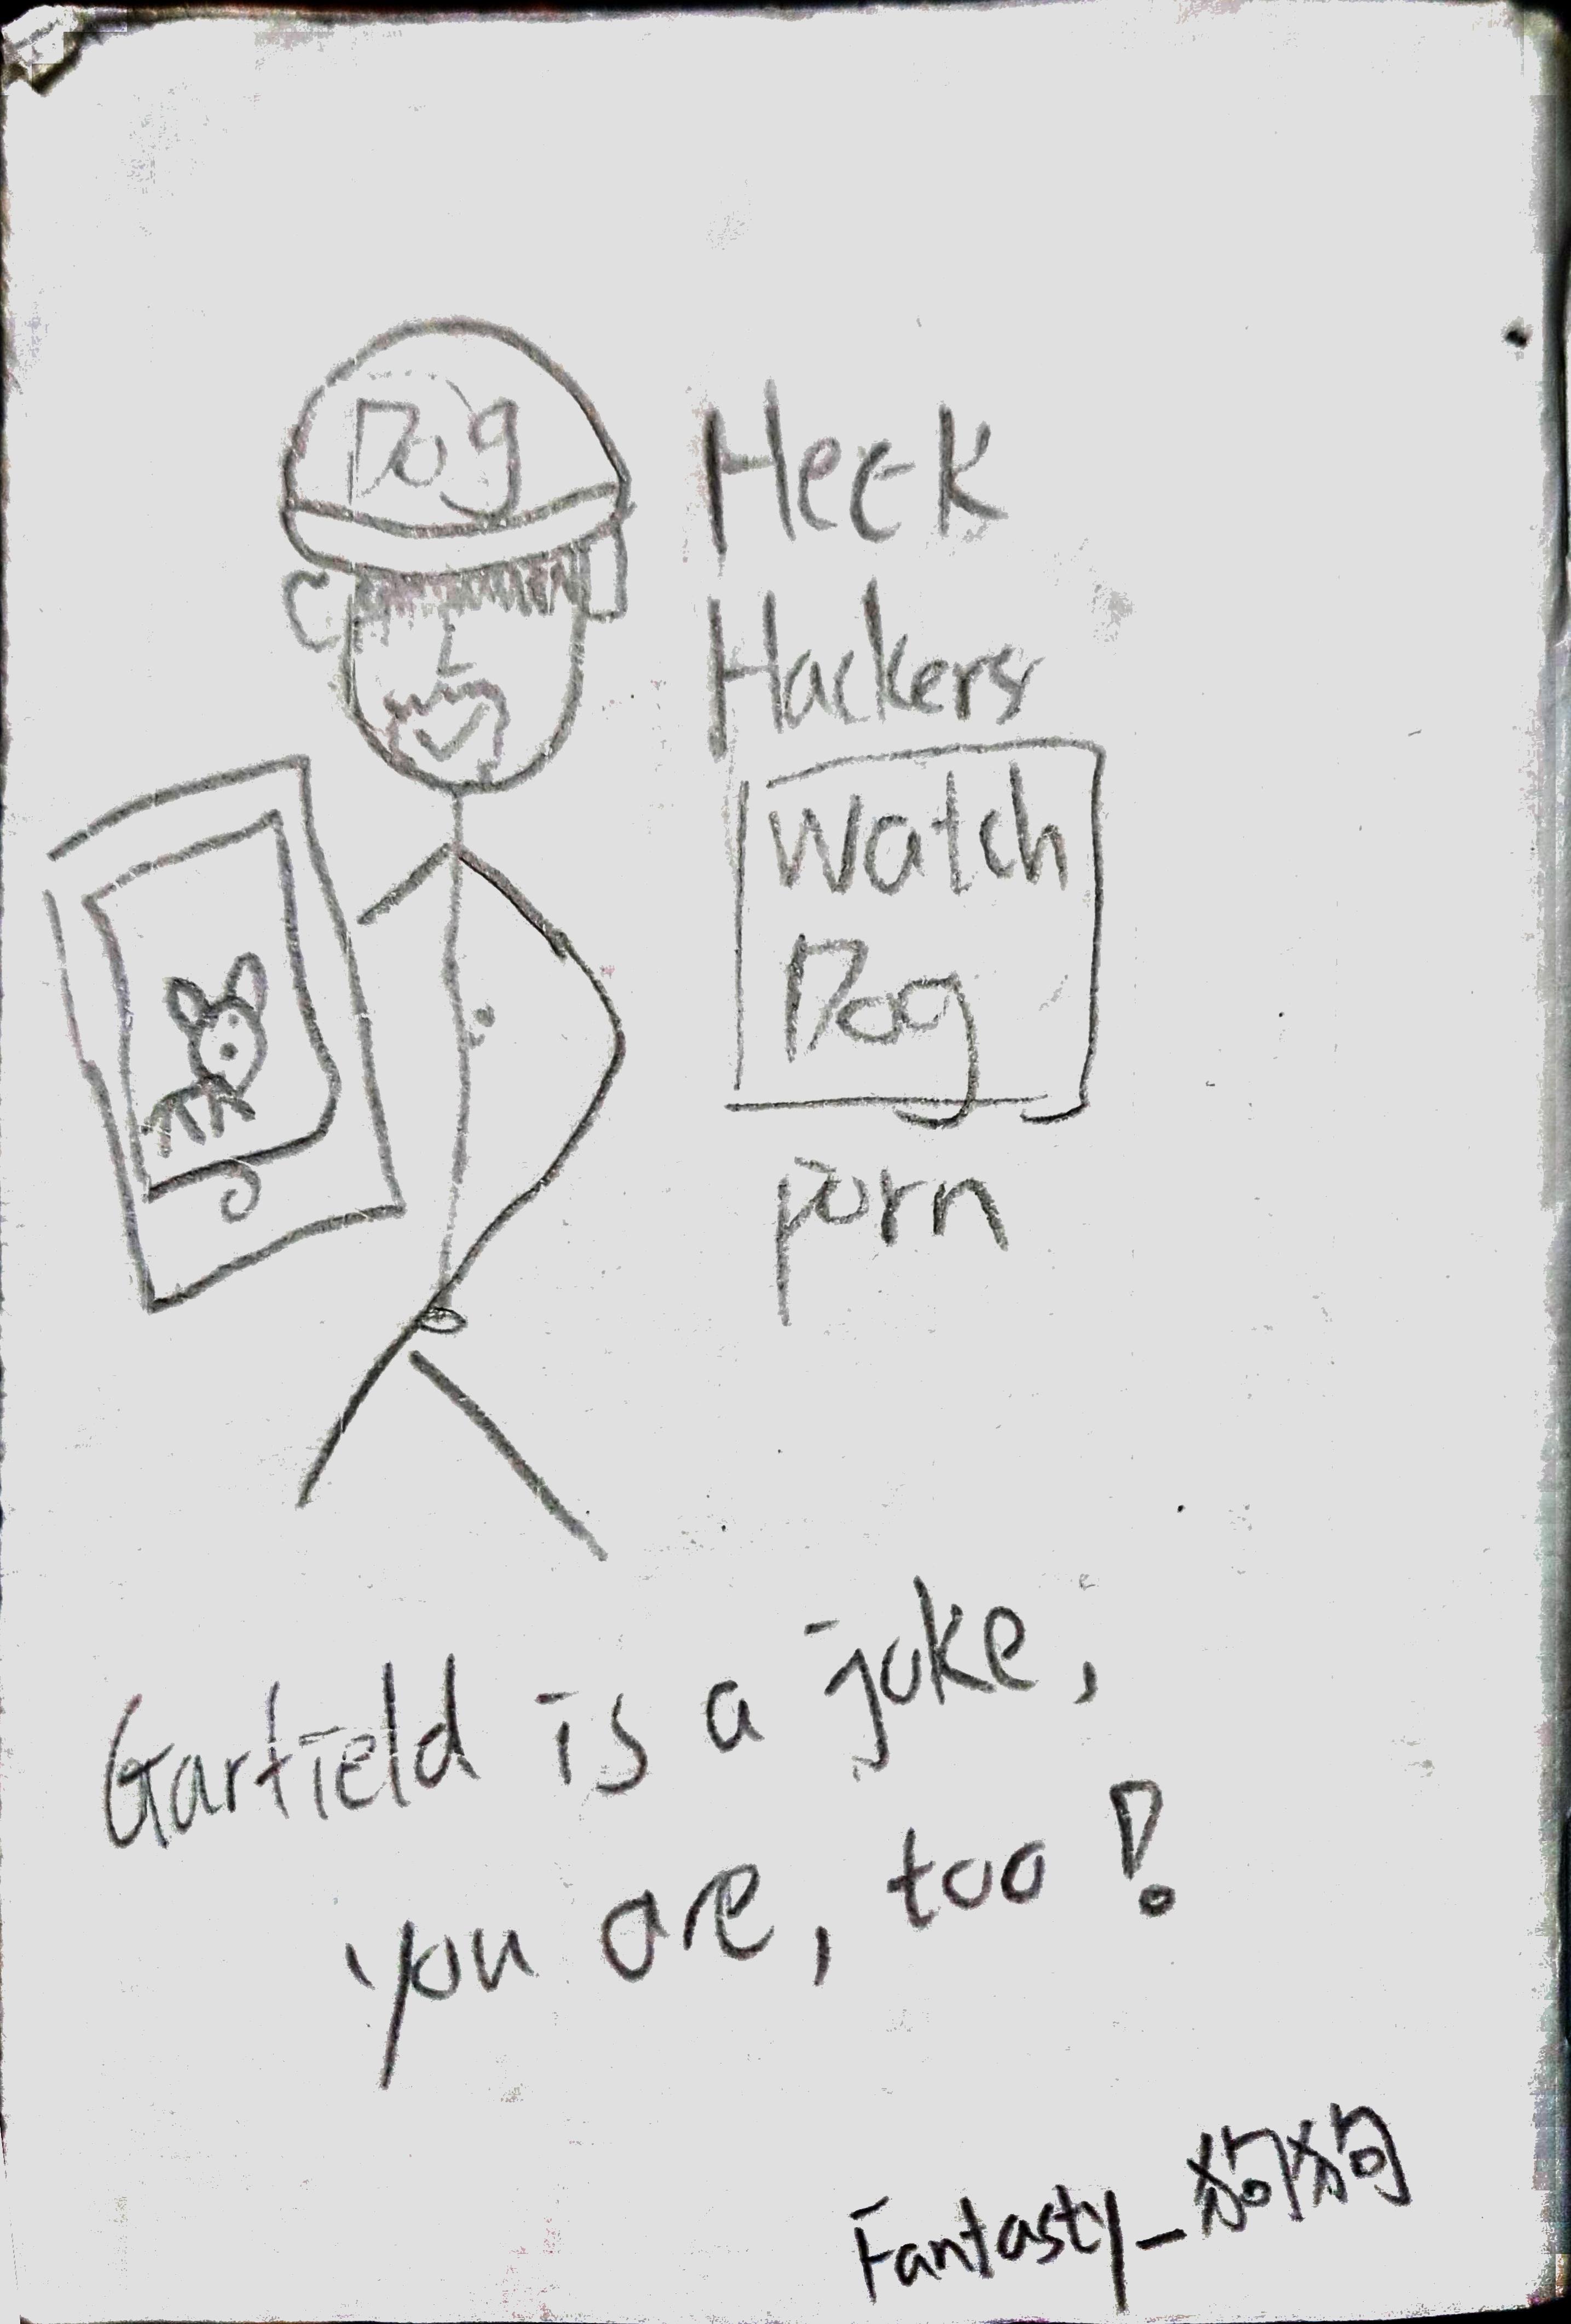 Dog
Heck
Hackers
Watch
Dog
porn
Garfield is a joke,
you are, too!
Fantasty_狗狗